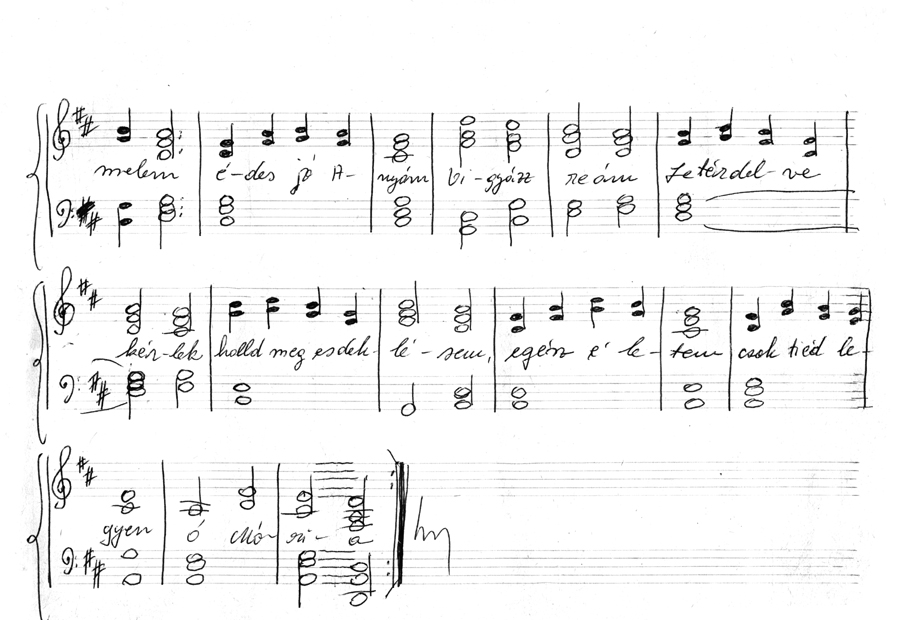 melem é-des jó A- nyám vi-gyázz reám Letérdel-ve
kér-lek halld meg esdek- lé-sem, egész é le- tem csak tiéd le-
gyen ó Má- ri- a